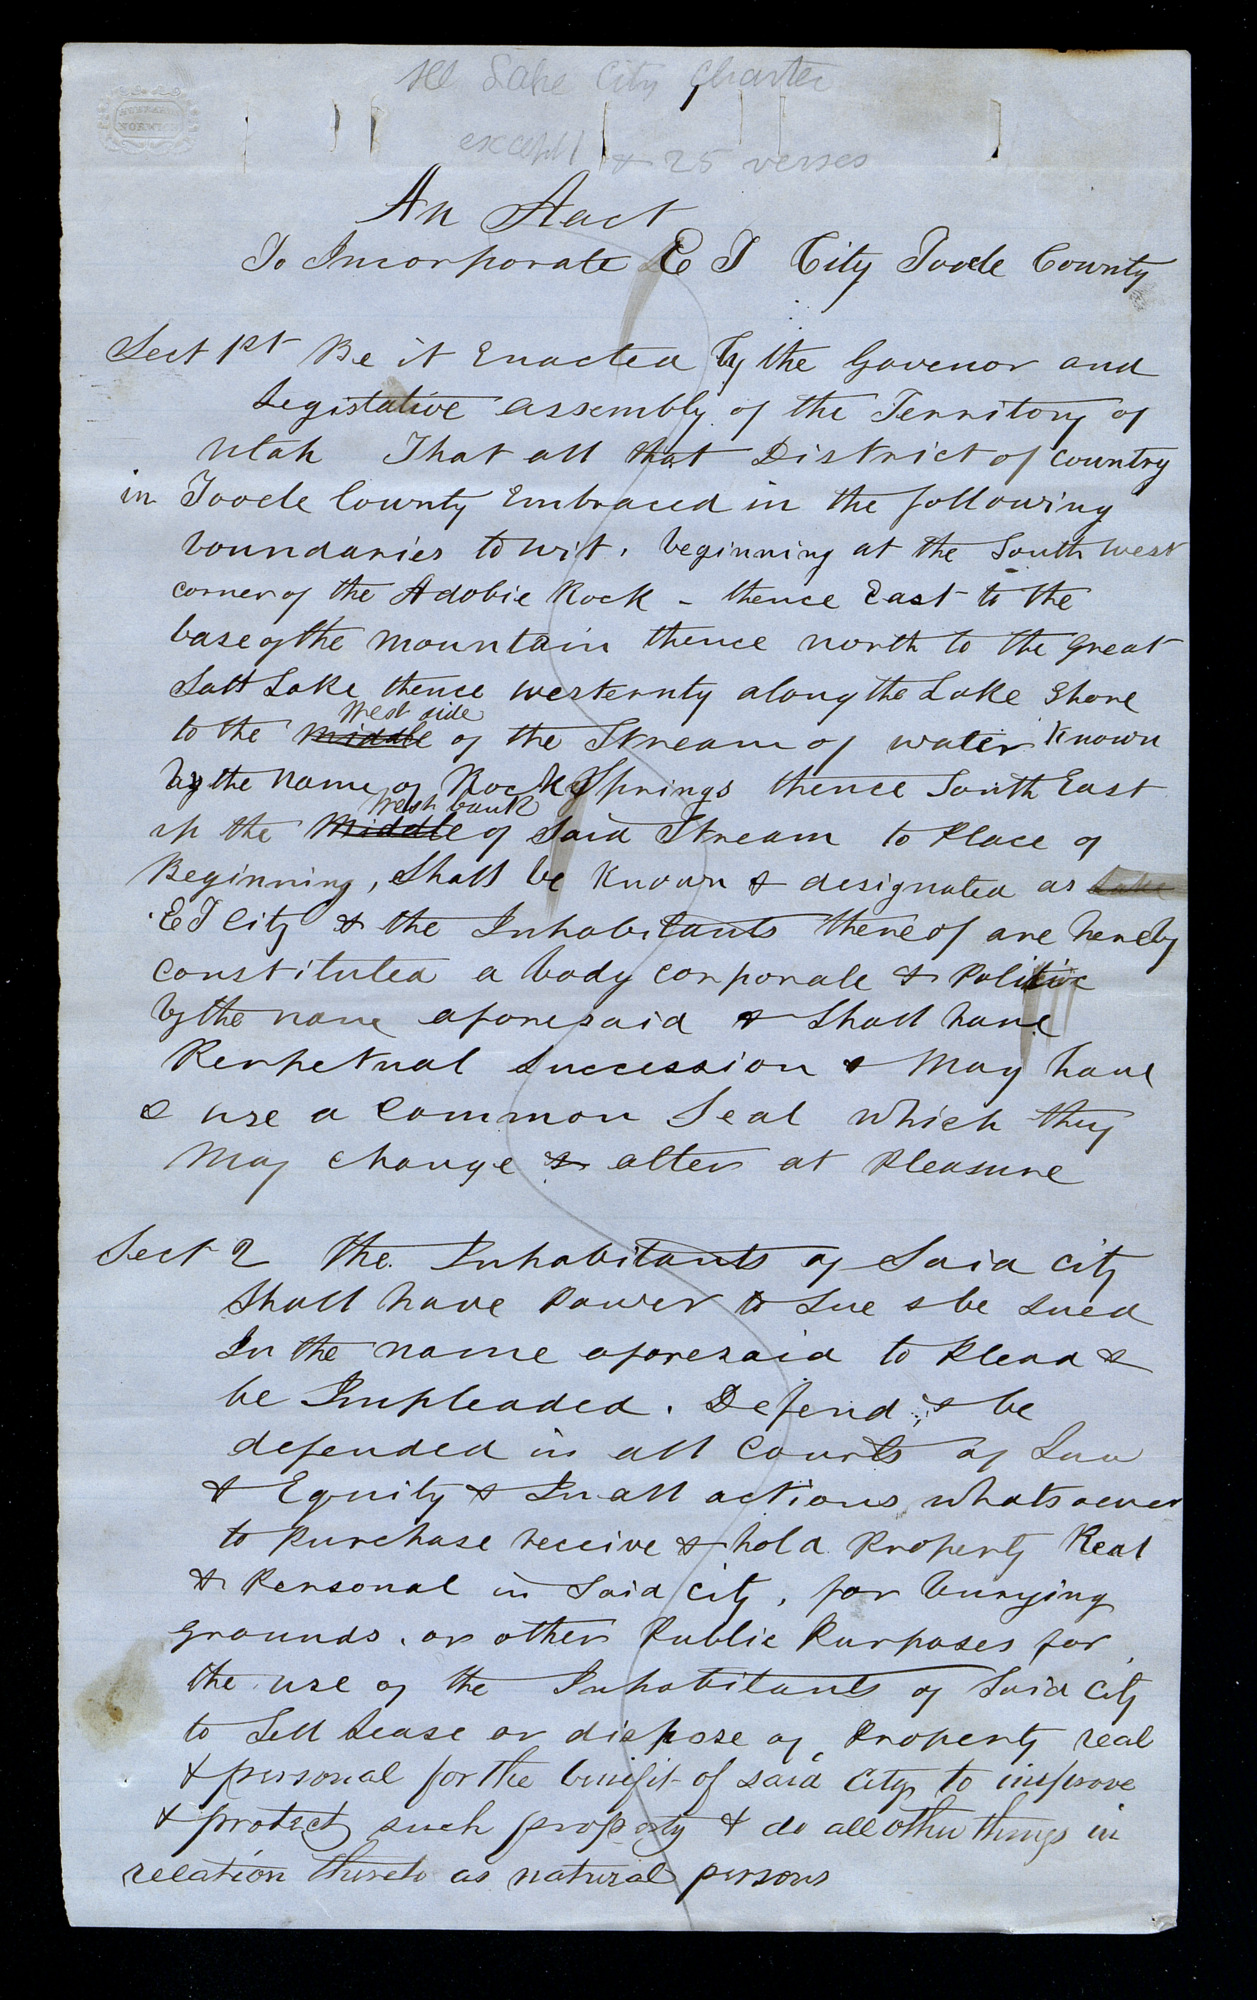 Lake City Charter
except 1 & 25 verses
An Aact
To Incorporate E T City Tooele County
Sect 1st Be it Enacted by the Govenor and
Legislative assembly of the Territory of
Utah That all that District of country
in Tooele County Embraced in the following
boundaries to wit, beginning at the South west
corner of the Adobie Rock - thence East to the
base of the mountain thence north to the great
Salt Lake thence westernty along the Lake Shore
West side
to the Middle of the Stream of water Known
by the name of Rock Springs thence South East
West bank
up the Middle of Said Stream to Place of
Beginning, Shall be Known & designated as Lake
E T City & the Inhabitants thereof are hereby
constituted a body corporate & Politic
by the name aforesaid & Shall have
Perpetual Succession & May have
& use a Common Seal which they
May change & alter at Pleasure
Sect 2 The Inhabitants of Said City
Shall have Power to Sue & be Sued
In the name aforesaid to Plead &
be Impleaded. Defend & be
defended in all Courts of Law
& Equity & In all actions whatsoever
to Purchase receive & hold Property Real
& Personal in Said City, for burying
grounds, or other Public Purposes for
the use of the Inhabitants of Said City
to Sell Lease or dispose of Property real
& personal for the benefit of said City, to improve
& protect such property & do all other things in
relation thereto as natural persons